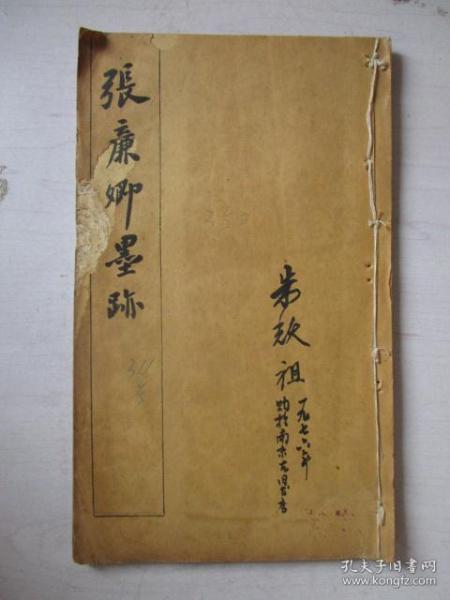 張廉卿墨跡
朱欣祖
一九七六年
购於南京古旧书店
孔夫子旧书网
www.kongfz.com